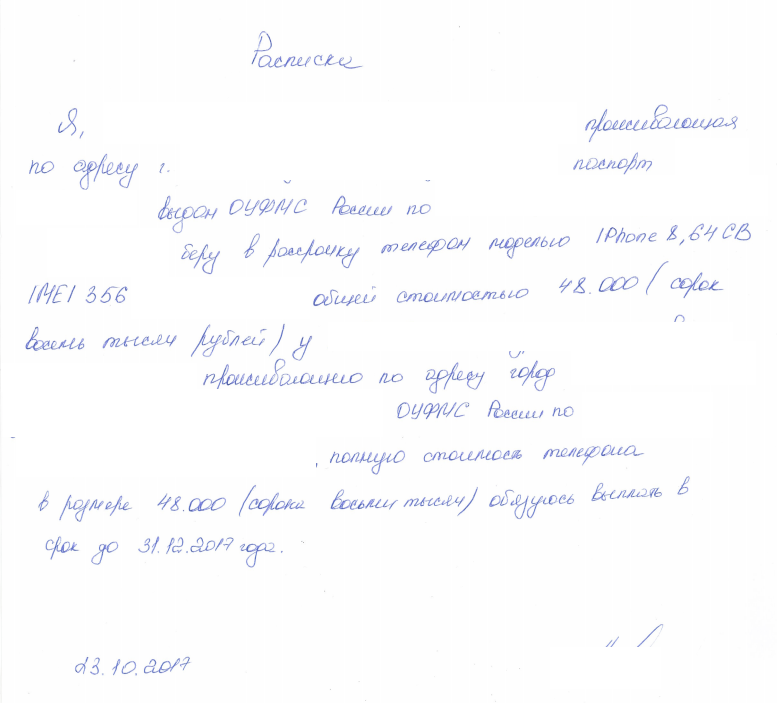 Расписка
Я, проживающая
по адресу г. паспорт
выдан ОУФМС России по
беру в рассрочку телефон моделью IPhone 8, 64 GB
IMEI 356 общей стоимостью 48.000 (сорок
восемь тысяч рублей) у
проживающию по адресу город
ОУФМС России по
, полную стоимость телефона
в размере 48.000 (сорока восьми тысяч) обязуюсь выплать в
срок до 31.12.2017 года.
23.10.2017